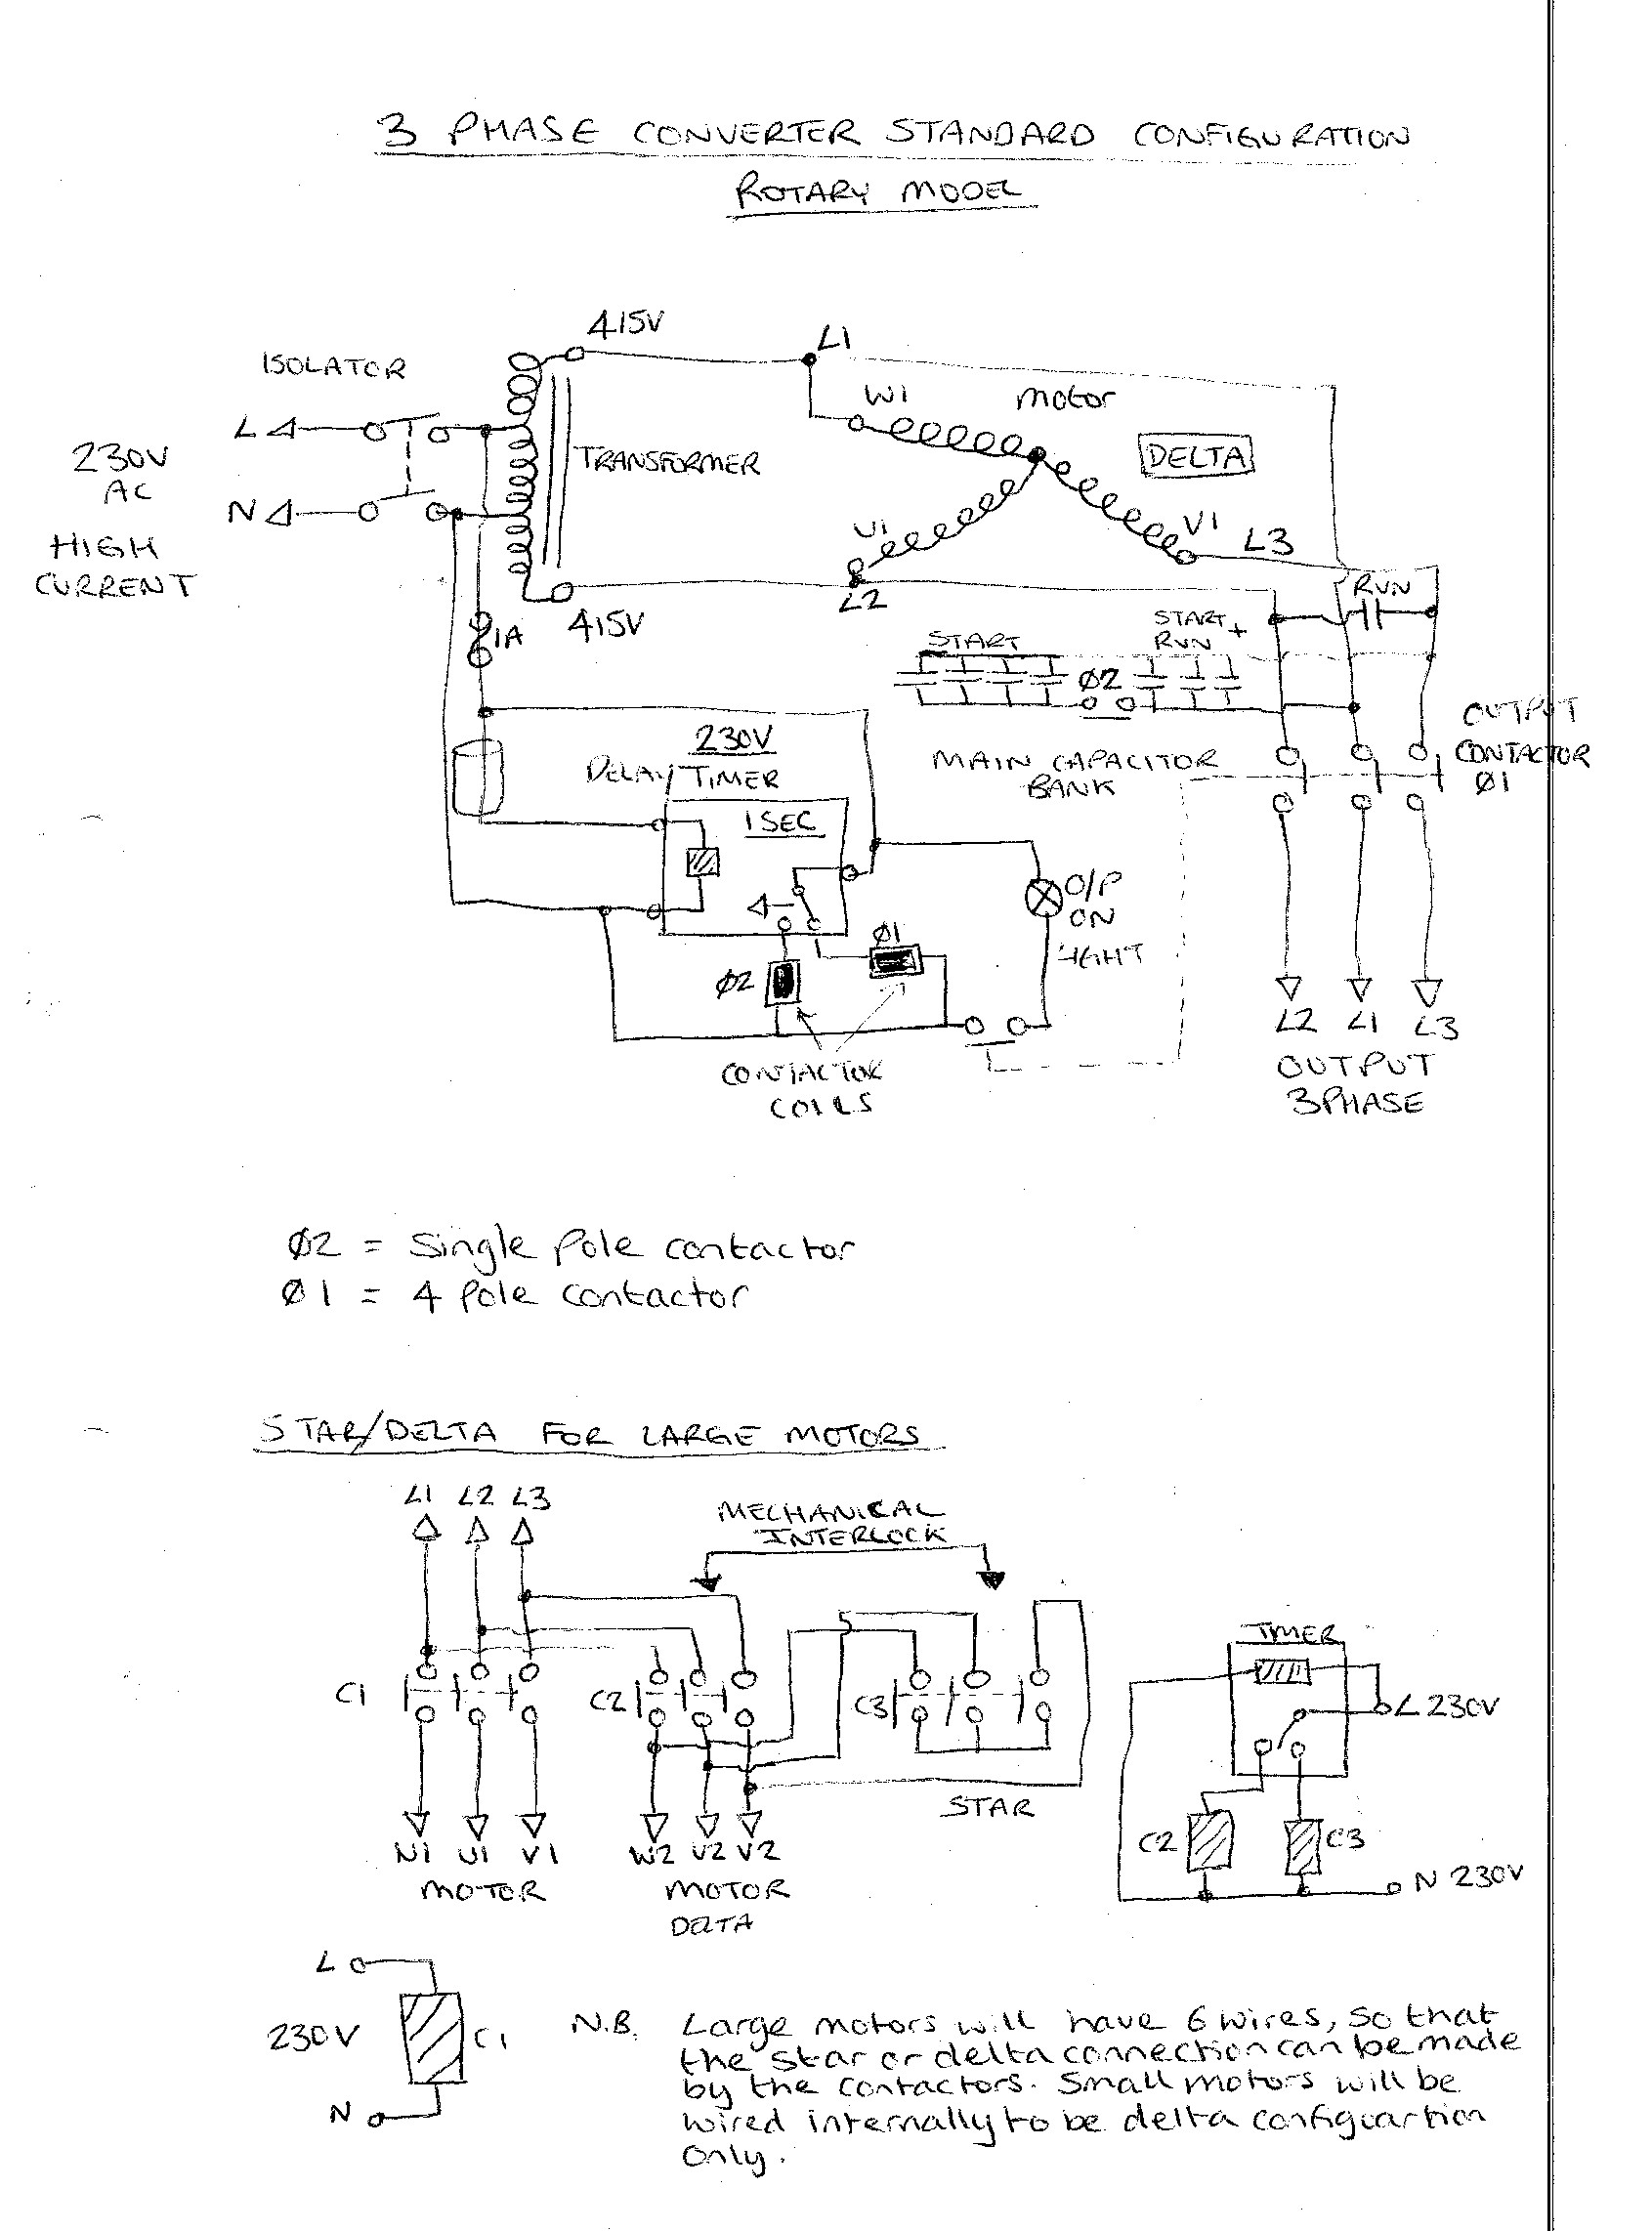 3 PHASE CONVERTER STANDARD CONFIGURATION
ROTARY MODEL
415V
L1
ISOLATOR
W1
Motor
L
230V
AC
TRANSFORMER
DELTA
N
U1
V1
L3
HIGH
CURRENT
L2
RUN
1A
415V
START
START +
RUN
Ø2
230V
DELAY TIMER
MAIN CAPACITOR
BANK
OUTPUT
CONTACTOR
Ø1
1 SEC
O/P
ON
Ø1
Ø2
CONTACTOR
COILS
L2 L1 L3
OUTPUT
3PHASE
Ø2 = Single Pole contactor
Ø1 = 4 Pole contactor
STAR/DELTA FOR LARGE MOTORS
L1 L2 L3
MECHANICAL
INTERLOCK
TIMER
C1
C2
C3
L 230V
STAR
C2
C3
U1 V1
MOTOR
W2 V2
MOTOR
DELTA
N 230V
L
230V
C1
N
N.B. Large motors will have 6 wires, so that
the star or delta connection can be made
by the contactors. Small motors will be
wired internally to be delta configuartion
only.